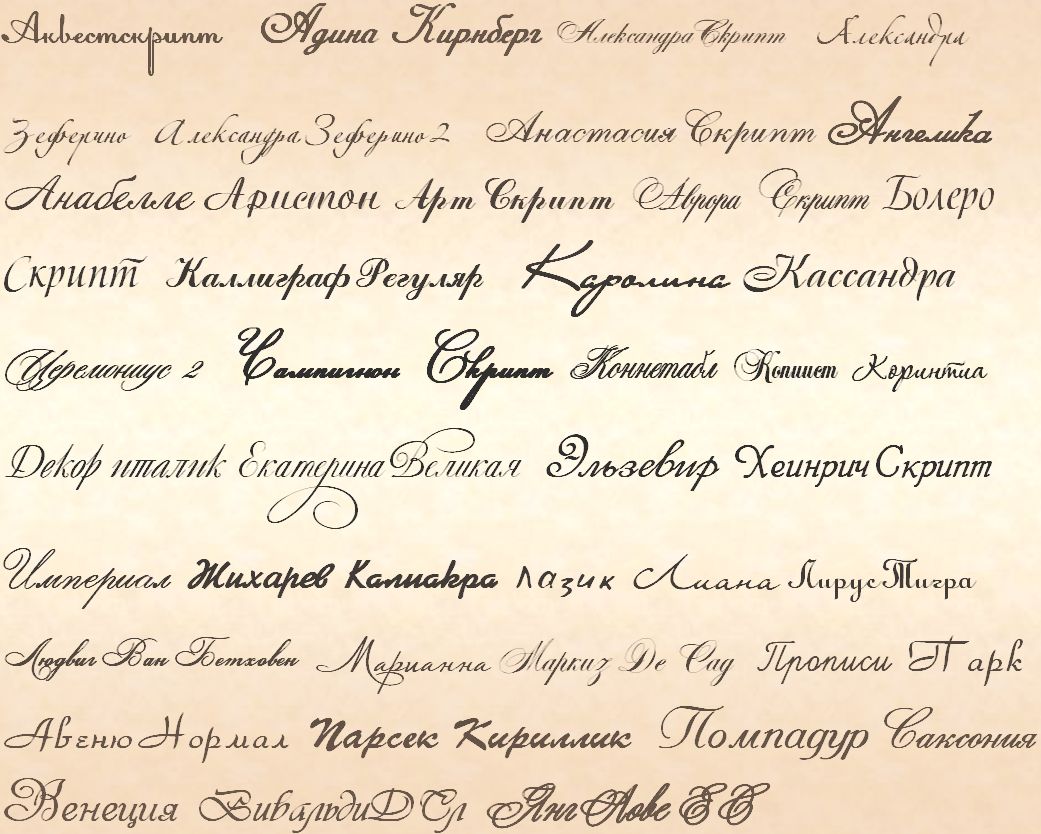 Аквестскрипт Адина Кирнберг Александра Скрипт Александра
Зеферино Александра Зеферино 2 Анастасия Скрипт Ангелика
Анабелле Аристон Арт Скрипт Аврора Скрипт Болеро
Скрипт Каллиграф Регуляр Каролина Кассандра
Церемониус 2 Чампигнон Скрипт Коннетабл Копиист Коринтиа
Декор италик Екатерина Великая Эльзевир Хеинрич Скрипт
Империал Жихарев Калиакра Лазик Лиана Лирус Тигра
Людвиг Ван Бетховен Марианна Маркиз Де Сад Прописи Парк
Авеню Нормал Парсек Кириллик Помпадур Саксония
Венеция Вивальди Д Сл Янг Лове ЕС